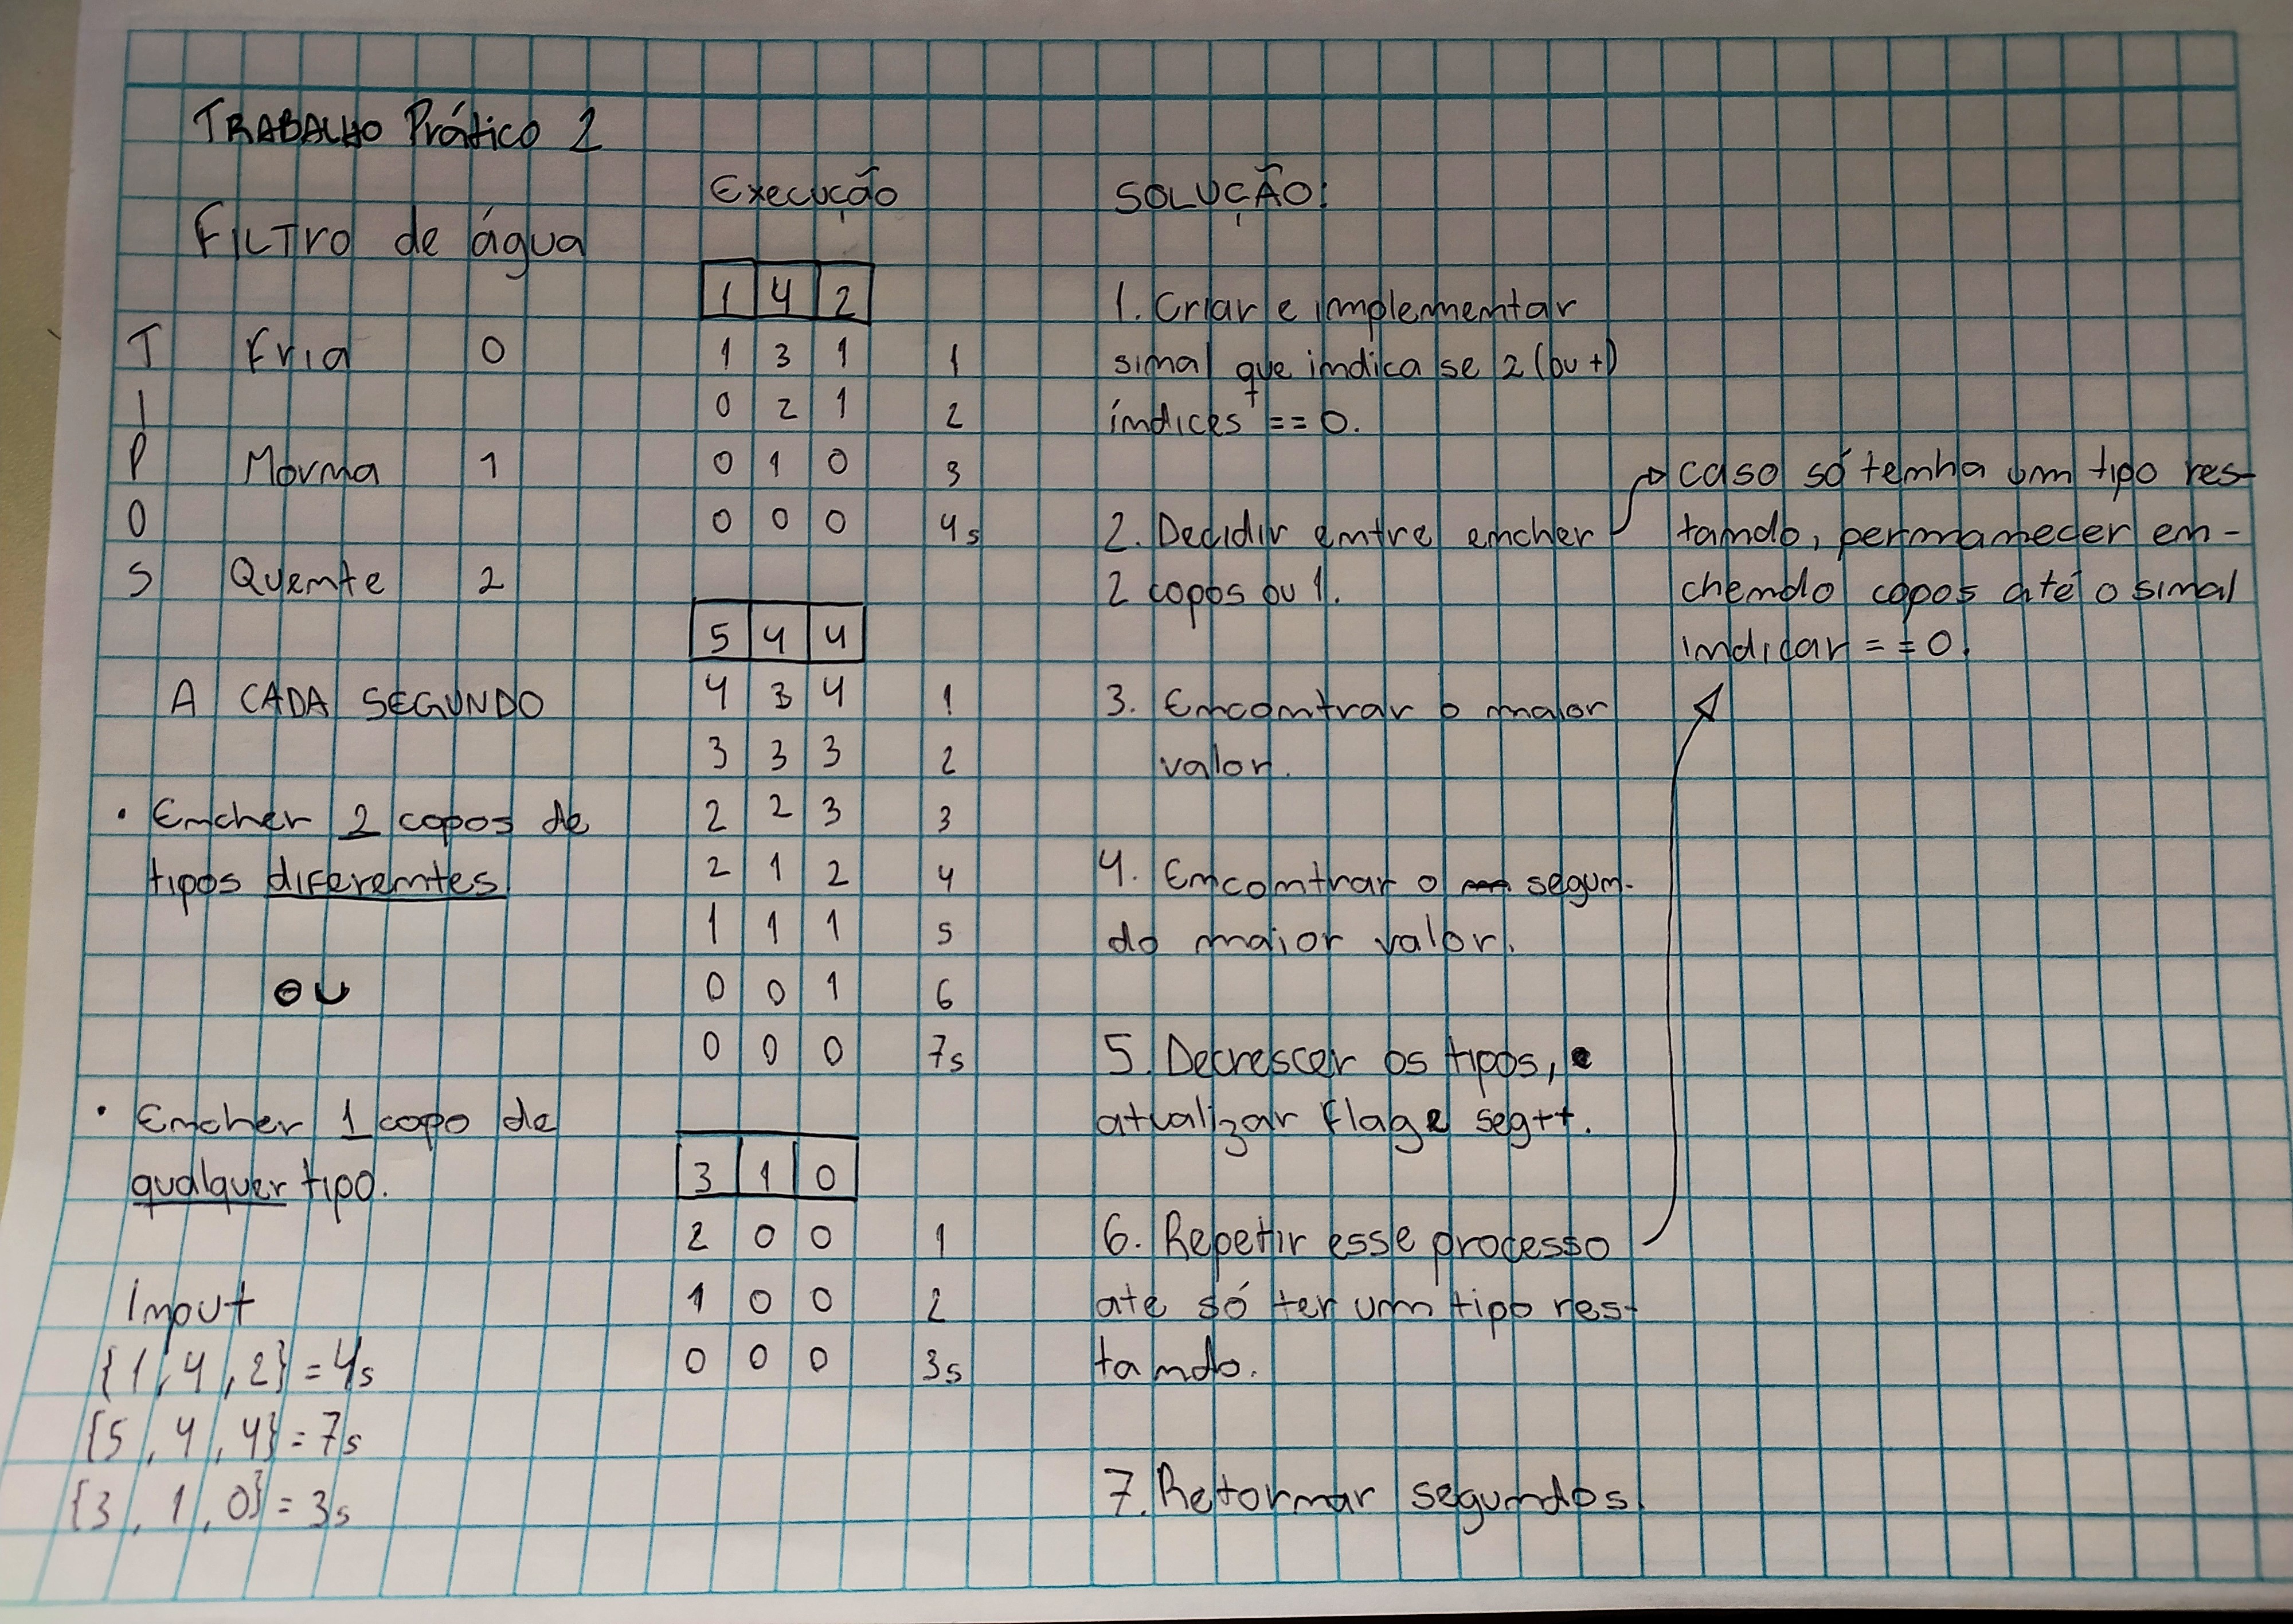 TRABALHO Prático 2
Filtro de água
TIPOS
Fria 0
Morna 1
Quente 2
A CADA SEGUNDO
• Encher 2 copos de
tipos diferentes
OU
• Encher 1 copo de
qualquer tipo.
Input
{1, 4, 2} = 4s
{5, 4, 4} = 7s
{3, 1, 0} = 3s
Execução
1 4 2
1 3 1 1
0 2 1 2
0 1 0 3
0 0 0 4s
5 4 4
4 3 4 1
3 3 3 2
2 2 3 3
2 1 2 4
1 1 1 5
0 0 1 6
0 0 0 7s
3 1 0
2 0 0 1
1 0 0 2
0 0 0 3s
SOLUÇÃO:
1. Criar e implementar
sinal que indica se 2 (ou +)
índices == 0.
2. Decidir entre encher
2 copos ou 1.
caso só tenha um tipo res-
tando, permanecer en-
chendo copos até o sinal
indicar == 0.
3. Encontrar o maior
valor.
4. Encontrar o segun-
do maior valor.
5. Decrescer os tipos,
atualizar flag e seg++.
6. Repetir esse processo
ate só ter um tipo res-
tando.
7. Retornar segundos.